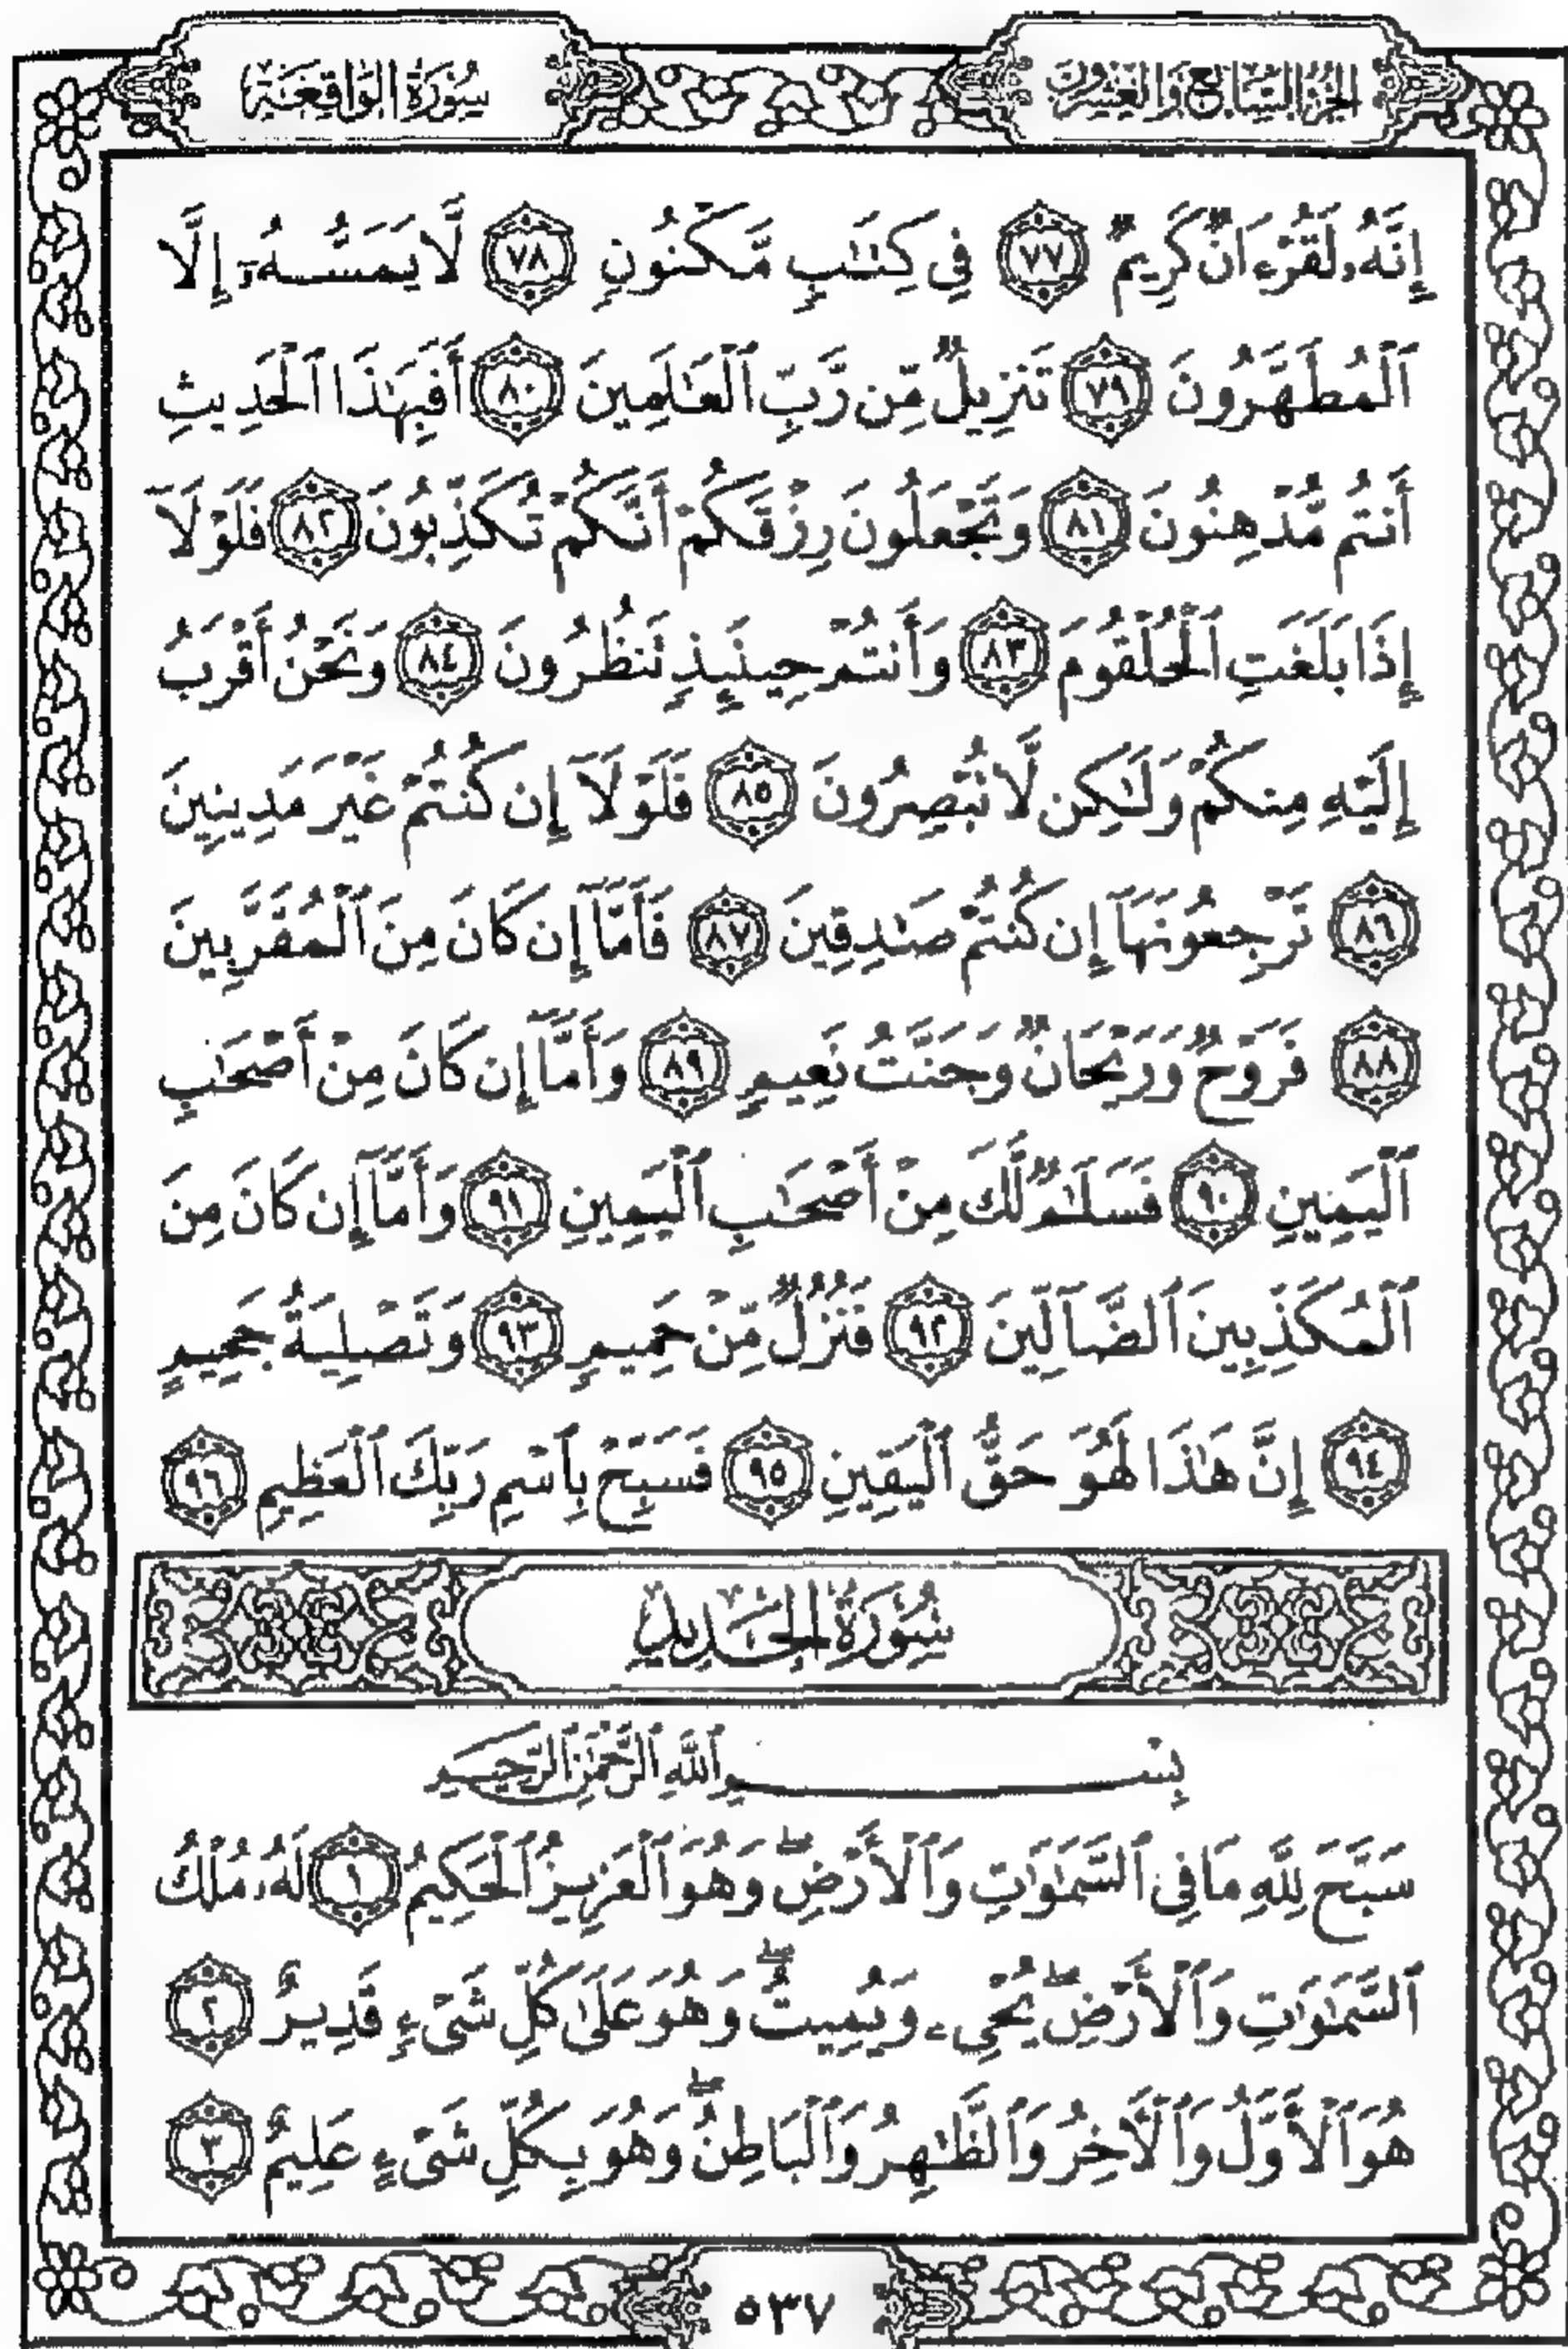 الجزء السابع والعشرون
سورة الواقعة
إِنَّهُۥ لَقُرْءَانٌ كَرِيمٌ ٧٧ فِى كِتَٰبٍ مَّكْنُونٍ ٧٨ لَّا يَمَسُّهُۥٓ إِلَّا
ٱلْمُطَهَّرُونَ ٧٩ تَنزِيلٌ مِّن رَّبِّ ٱلْعَٰلَمِينَ ٨٠ أَفَبِهَٰذَا ٱلْحَدِيثِ
أَنتُم مُّدْهِنُونَ ٨١ وَتَجْعَلُونَ رِزْقَكُمْ أَنَّكُمْ تُكَذِّبُونَ ٨٢ فَلَوْلَآ
إِذَا بَلَغَتِ ٱلْحُلْقُومَ ٨٣ وَأَنتُمْ حِينَئِذٍ تَنظُرُونَ ٨٤ وَنَحْنُ أَقْرَبُ
إِلَيْهِ مِنكُمْ وَلَٰكِن لَّا تُبْصِرُونَ ٨٥ فَلَوْلَآ إِن كُنتُمْ غَيْرَ مَدِينِينَ
٨٦ تَرْجِعُونَهَآ إِن كُنتُمْ صَٰدِقِينَ ٨٧ فَأَمَّآ إِن كَانَ مِنَ ٱلْمُقَرَّبِينَ
٨٨ فَرَوْحٌ وَرَيْحَانٌ وَجَنَّتُ نَعِيمٍ ٨٩ وَأَمَّآ إِن كَانَ مِنْ أَصْحَٰبِ
ٱلْيَمِينِ ٩٠ فَسَلَٰمٌ لَّكَ مِنْ أَصْحَٰبِ ٱلْيَمِينِ ٩١ وَأَمَّآ إِن كَانَ مِنَ
ٱلْمُكَذِّبِينَ ٱلضَّآلِّينَ ٩٢ فَنُزُلٌ مِّنْ حَمِيمٍ ٩٣ وَتَصْلِيَةُ جَحِيمٍ
٩٤ إِنَّ هَٰذَا لَهُوَ حَقُّ ٱلْيَقِينِ ٩٥ فَسَبِّحْ بِٱسْمِ رَبِّكَ ٱلْعَظِيمِ ٩٦
سورة الحديد
بِسْمِ ٱللَّهِ ٱلرَّحْمَٰنِ ٱلرَّحِيمِ
سَبَّحَ لِلَّهِ مَا فِى ٱلسَّمَٰوَٰتِ وَٱلْأَرْضِ ۖ وَهُوَ ٱلْعَزِيزُ ٱلْحَكِيمُ ١ لَهُۥ مُلْكُ
ٱلسَّمَٰوَٰتِ وَٱلْأَرْضِ ۖ يُحْىِۦ وَيُمِيتُ ۖ وَهُوَ عَلَىٰ كُلِّ شَىْءٍ قَدِيرٌ ٢
هُوَ ٱلْأَوَّلُ وَٱلْءَاخِرُ وَٱلظَّٰهِرُ وَٱلْبَاطِنُ ۖ وَهُوَ بِكُلِّ شَىْءٍ عَلِيمٌ ٣
٥٣٧